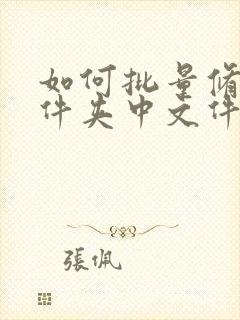 如何批量修
件夹中文件
張佩